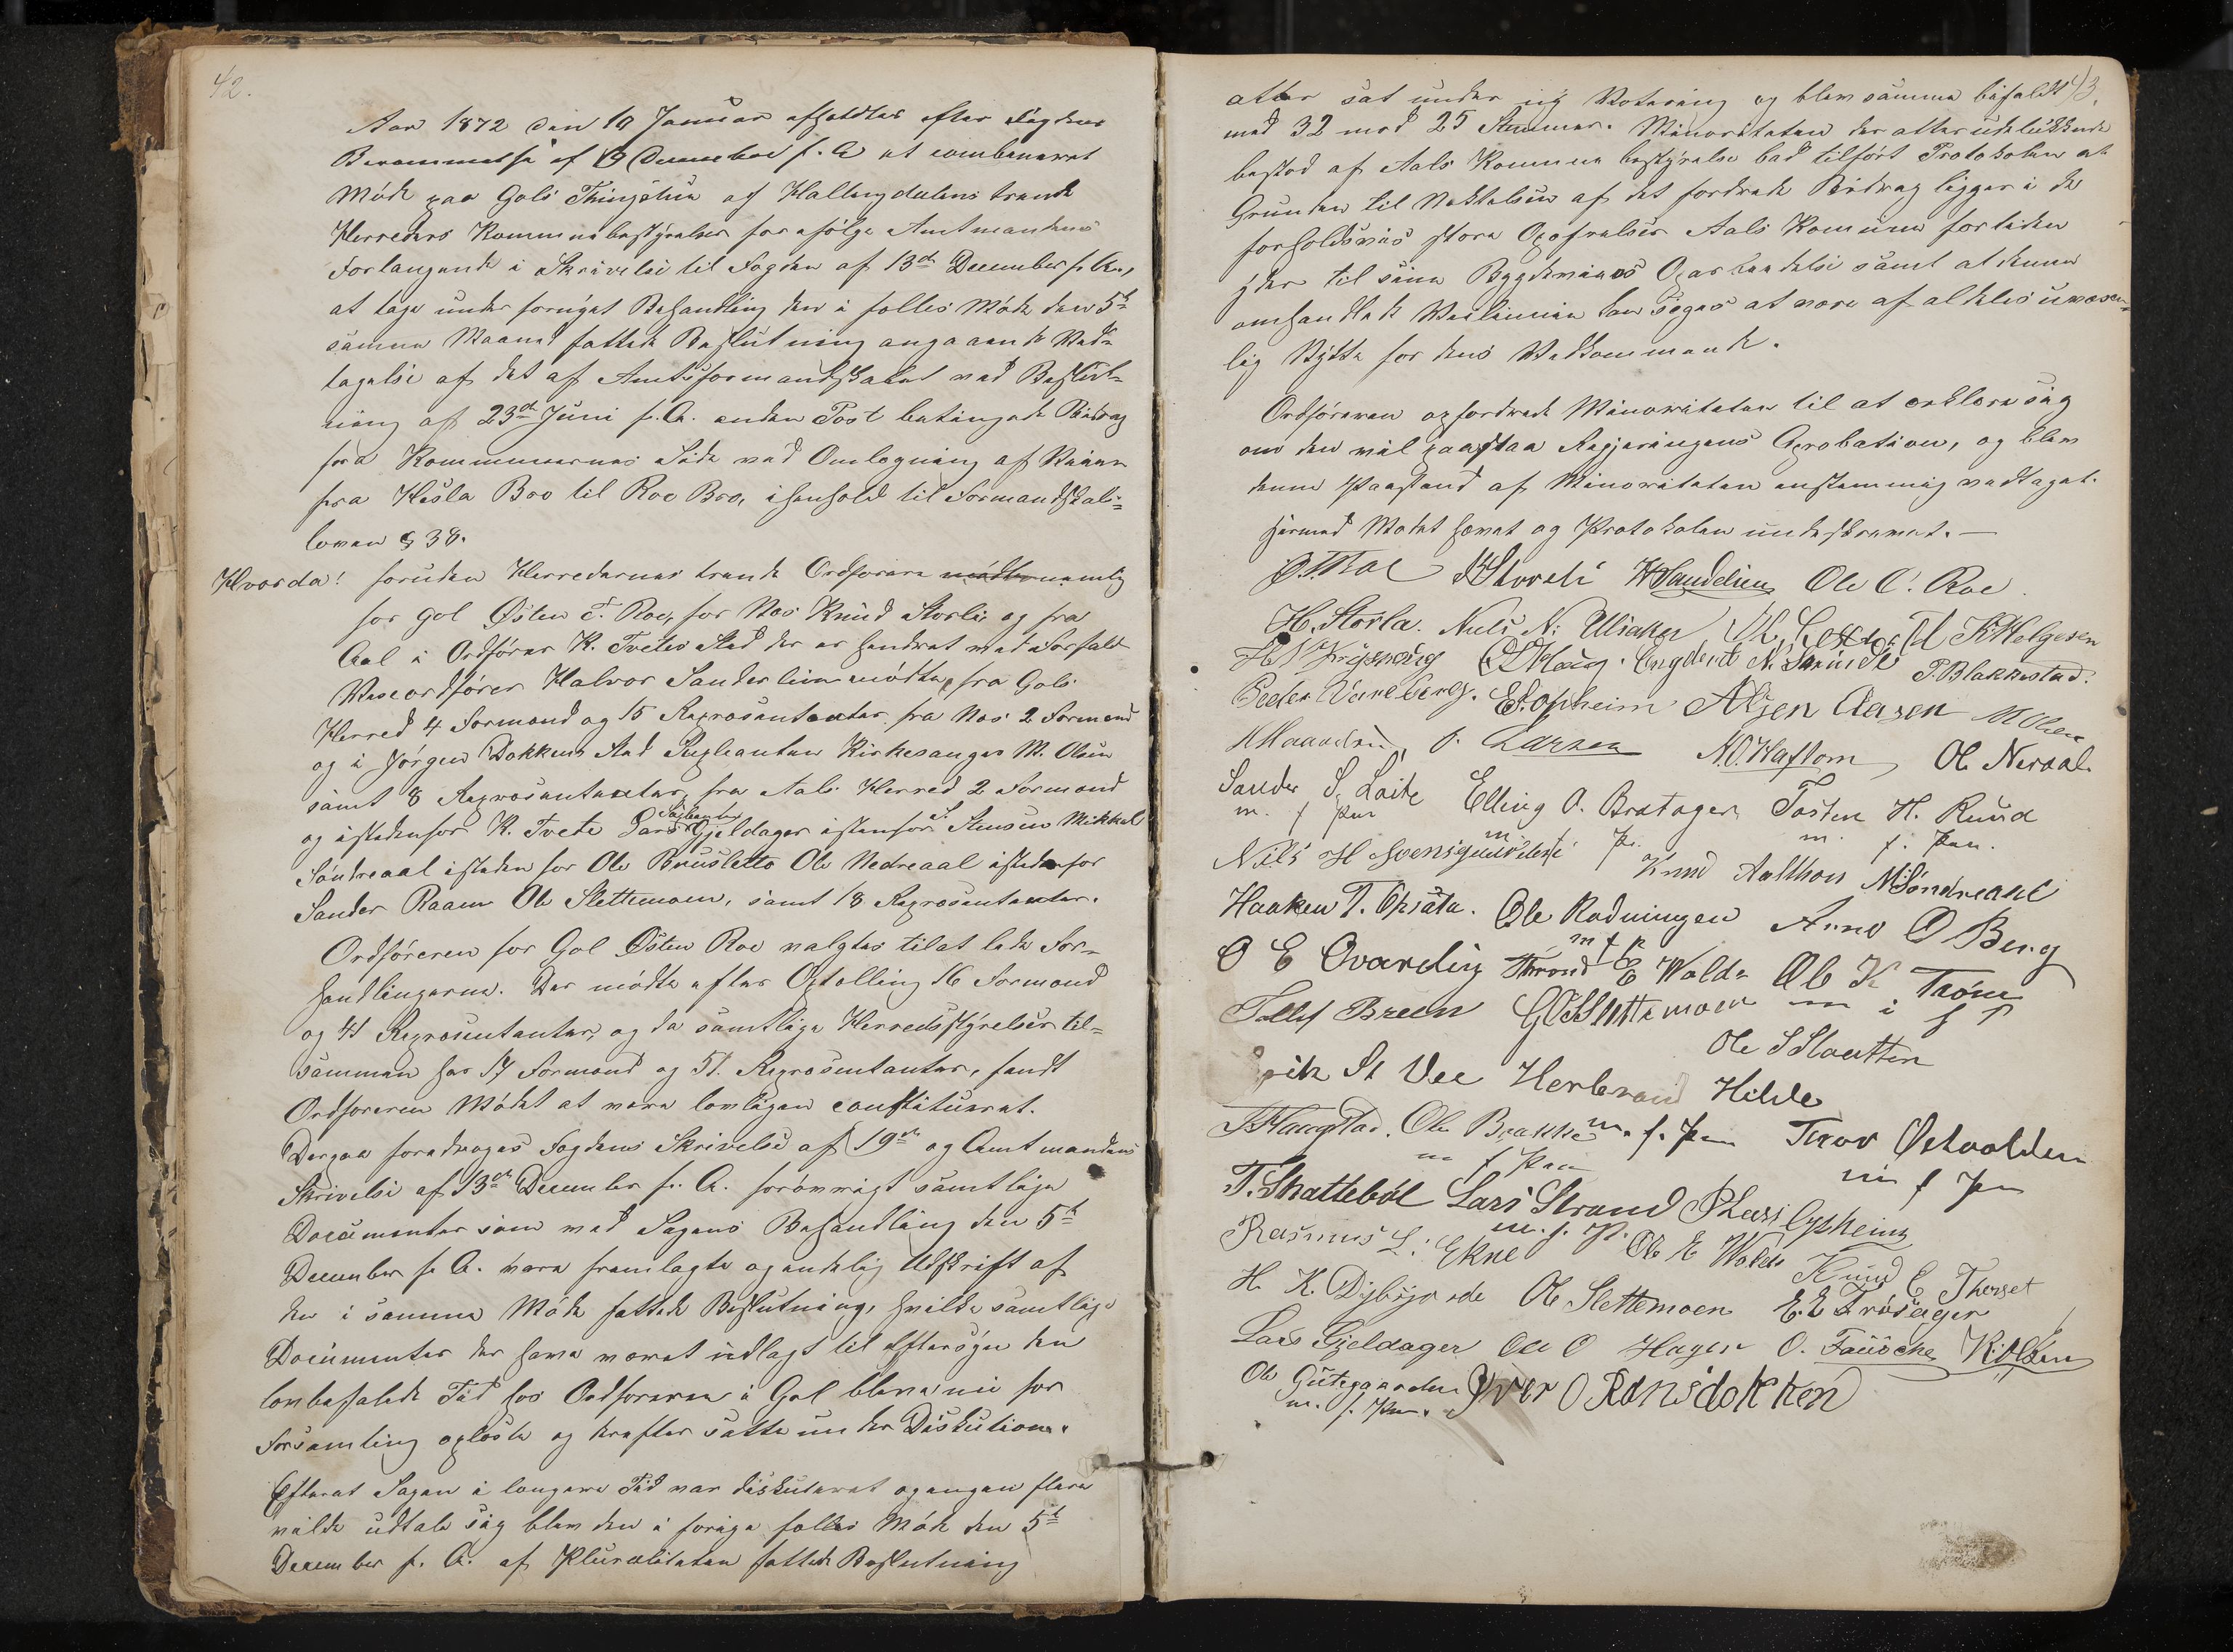 42.
Aar 1872 den 19 Januar afholdtes efter Fogdens
Berammelse af 19 December f. A et combineret
Møde paa Gols Thingstue af Hallingdalens trende
Herreders Kommunebestyrelser for ifølge Amtmandens
Forlangende i Skrivelse til Fogden af 13de December f. A.,
at tage under fornyet Behandling den i fælles Møde den 5te
samme Maaned fattede Beslutning angaaende Ved-
tagelse af det af Amtsformandskabet ved Beslut-
ning af 23de Juni f. A. anden Post betingede Bidrag
fra Kommunernes Side ved Omlægning af Veien
fra Hesla Bro til Roe Bro, i henhold til Formandskabs-
loven § 38.
Hvorda! foruden Herredernes trende Ordførere mødte nemlig
for Gol Østen T. Roe, for Næs Knud Storli og fra
Aal i Ordfører K. Tvetes Sted der er hindret med Forfald
Viceordfører Halvor Sander lien mødte, fra Gols
Herred 4 Formænd og 15 Repræsentanter, fra Næs 2 Formænd
og i Jørgen Dokkens Sted Supleanten Kirkesanger M. Olsen
samt 8 Repræsentanter, fra Aals Herred 2 Formænd
og istedenfor K. Tvete Supleanten Lars Gjeldager istenfor S. Stensen Mikkel
Søndreaal isteden for Ole Brusletto Ole Nedreaal istedenfor
Sander Raaen Ole Slettemoen, samt 18 Repræsentanter.
Ordføreren for Gol Østen Roe valgtes til at lede For-
handlingerne. Der mødte efter Optælling 16 Formænd
og 41 Repræsentanter, og da samtlige Herredsstyrelser til-
sammen har 17 Formænd og 51. Repræsentanter, fandt
Ordføreren Mødet at være lovligen constitueret.
Derpaa foredroges Fogdens Skrivelse af 19de og Amtmandens
Skrivelse af 13de December f. A. forøvrigt samtlige
Documenter som ved Sagens Behandling den 5te
December f. A. vare fremlagte og endelig Udskrift af
den i samme Møde fattede Beslutning, hvilke samtlige
Documenter der have været udlagt til Eftersyn den
lovbefalede Tid hos Ordføreren i Gol bleve nu for
Forsamling oplæste og derefter satte under Diskution.
Efterat Sagen i længere Tid var diskuteret og ingen flere
vilde udtale sig blev den i forige fælles Møde den 5te
December f. A. af Pluraliteten fattede Beslutning
43.
atter sat under ny Votering og blev samme bifaldt
med 32 mod 25 Stemmer. Minoriteten der atter udelukkende
bestod af Aals Kommunebestyrelse bad tilført Protokolen at
Grunden til Negtelsen af det fordrede Bidrag ligger i de
forholdsvis store Opofrelser Aals Komune for tiden
yder til sine Bygdeveies Oparbeidelse samt at denne
omhandlede Veilinie kan siges at være af aldeles uvæsen-
lig Nytte for dens Vedkommende.
Ordføreren opfordrede Minoriteten til at erklære sig
om den vil paastaa Regjeringens Aprobation, og blev
denne Paastand af Minoriteten enstemmig vedtaget.
Hermed Mødet hævet og Protokolen underskrevet. —
Ø. T. Roe K Storli H Sandelien Ole O. Roe
H. Storla. Nils N. Ullsaker K Helgesen
Engebret N. Skrinde T. Blakkestad.
E. Opheim Aasen M Olsen
O. Larsen N. O. Haftorn Ole Nersal
Sander S. Loite Elling O. Brataager Tosten H. Ruud
m. f. Pen m. P. m. f. Pen.
Nils H Svensgaard Knud Aalthon M Søndreaal
Haaken T. Opsata. Ole Rodningen Arne O Berg
m f P
O E Qvarding Thrond E Wolde Ole K Trøne
Tollef Breen G O Slettemoen
Ole S Slaatten
Erik St Vee Herbrand Hilde
T Haugstad. Ole Brakke m. f. Pen Thor Østvolden
m f Pen m f Pen
T. Skattebøl Lars Strand P Larsi Opheim
m. f. P.
Rasmus L. Ekne Ole E Wolde Knud E Thorset
H. K. Dybsjorde Ole Slettemoen E. E Trøsager
Lars Gjeldager Ole O Hagen O. Fauske K. Olsen
Ole Gutegaarden Iver O Rensdokken
m. f. Pen.